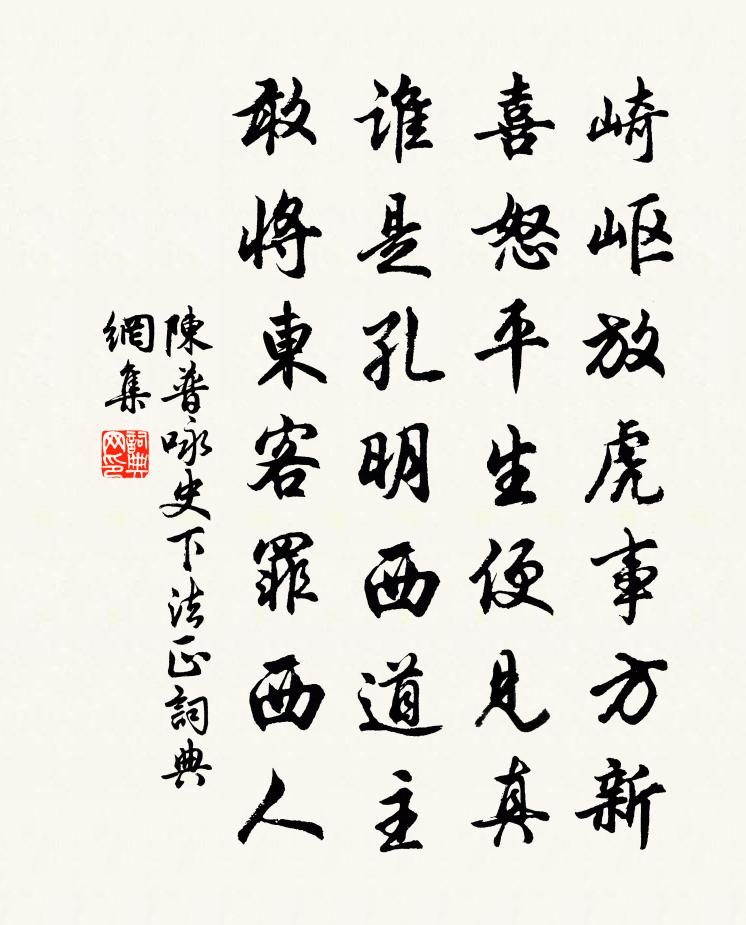 崎岖放虎事方新
喜怒平生便見真
谁是孔明西道主
敢将東客罪西人
陳普咏史下法正詞典
網集
詞典網印